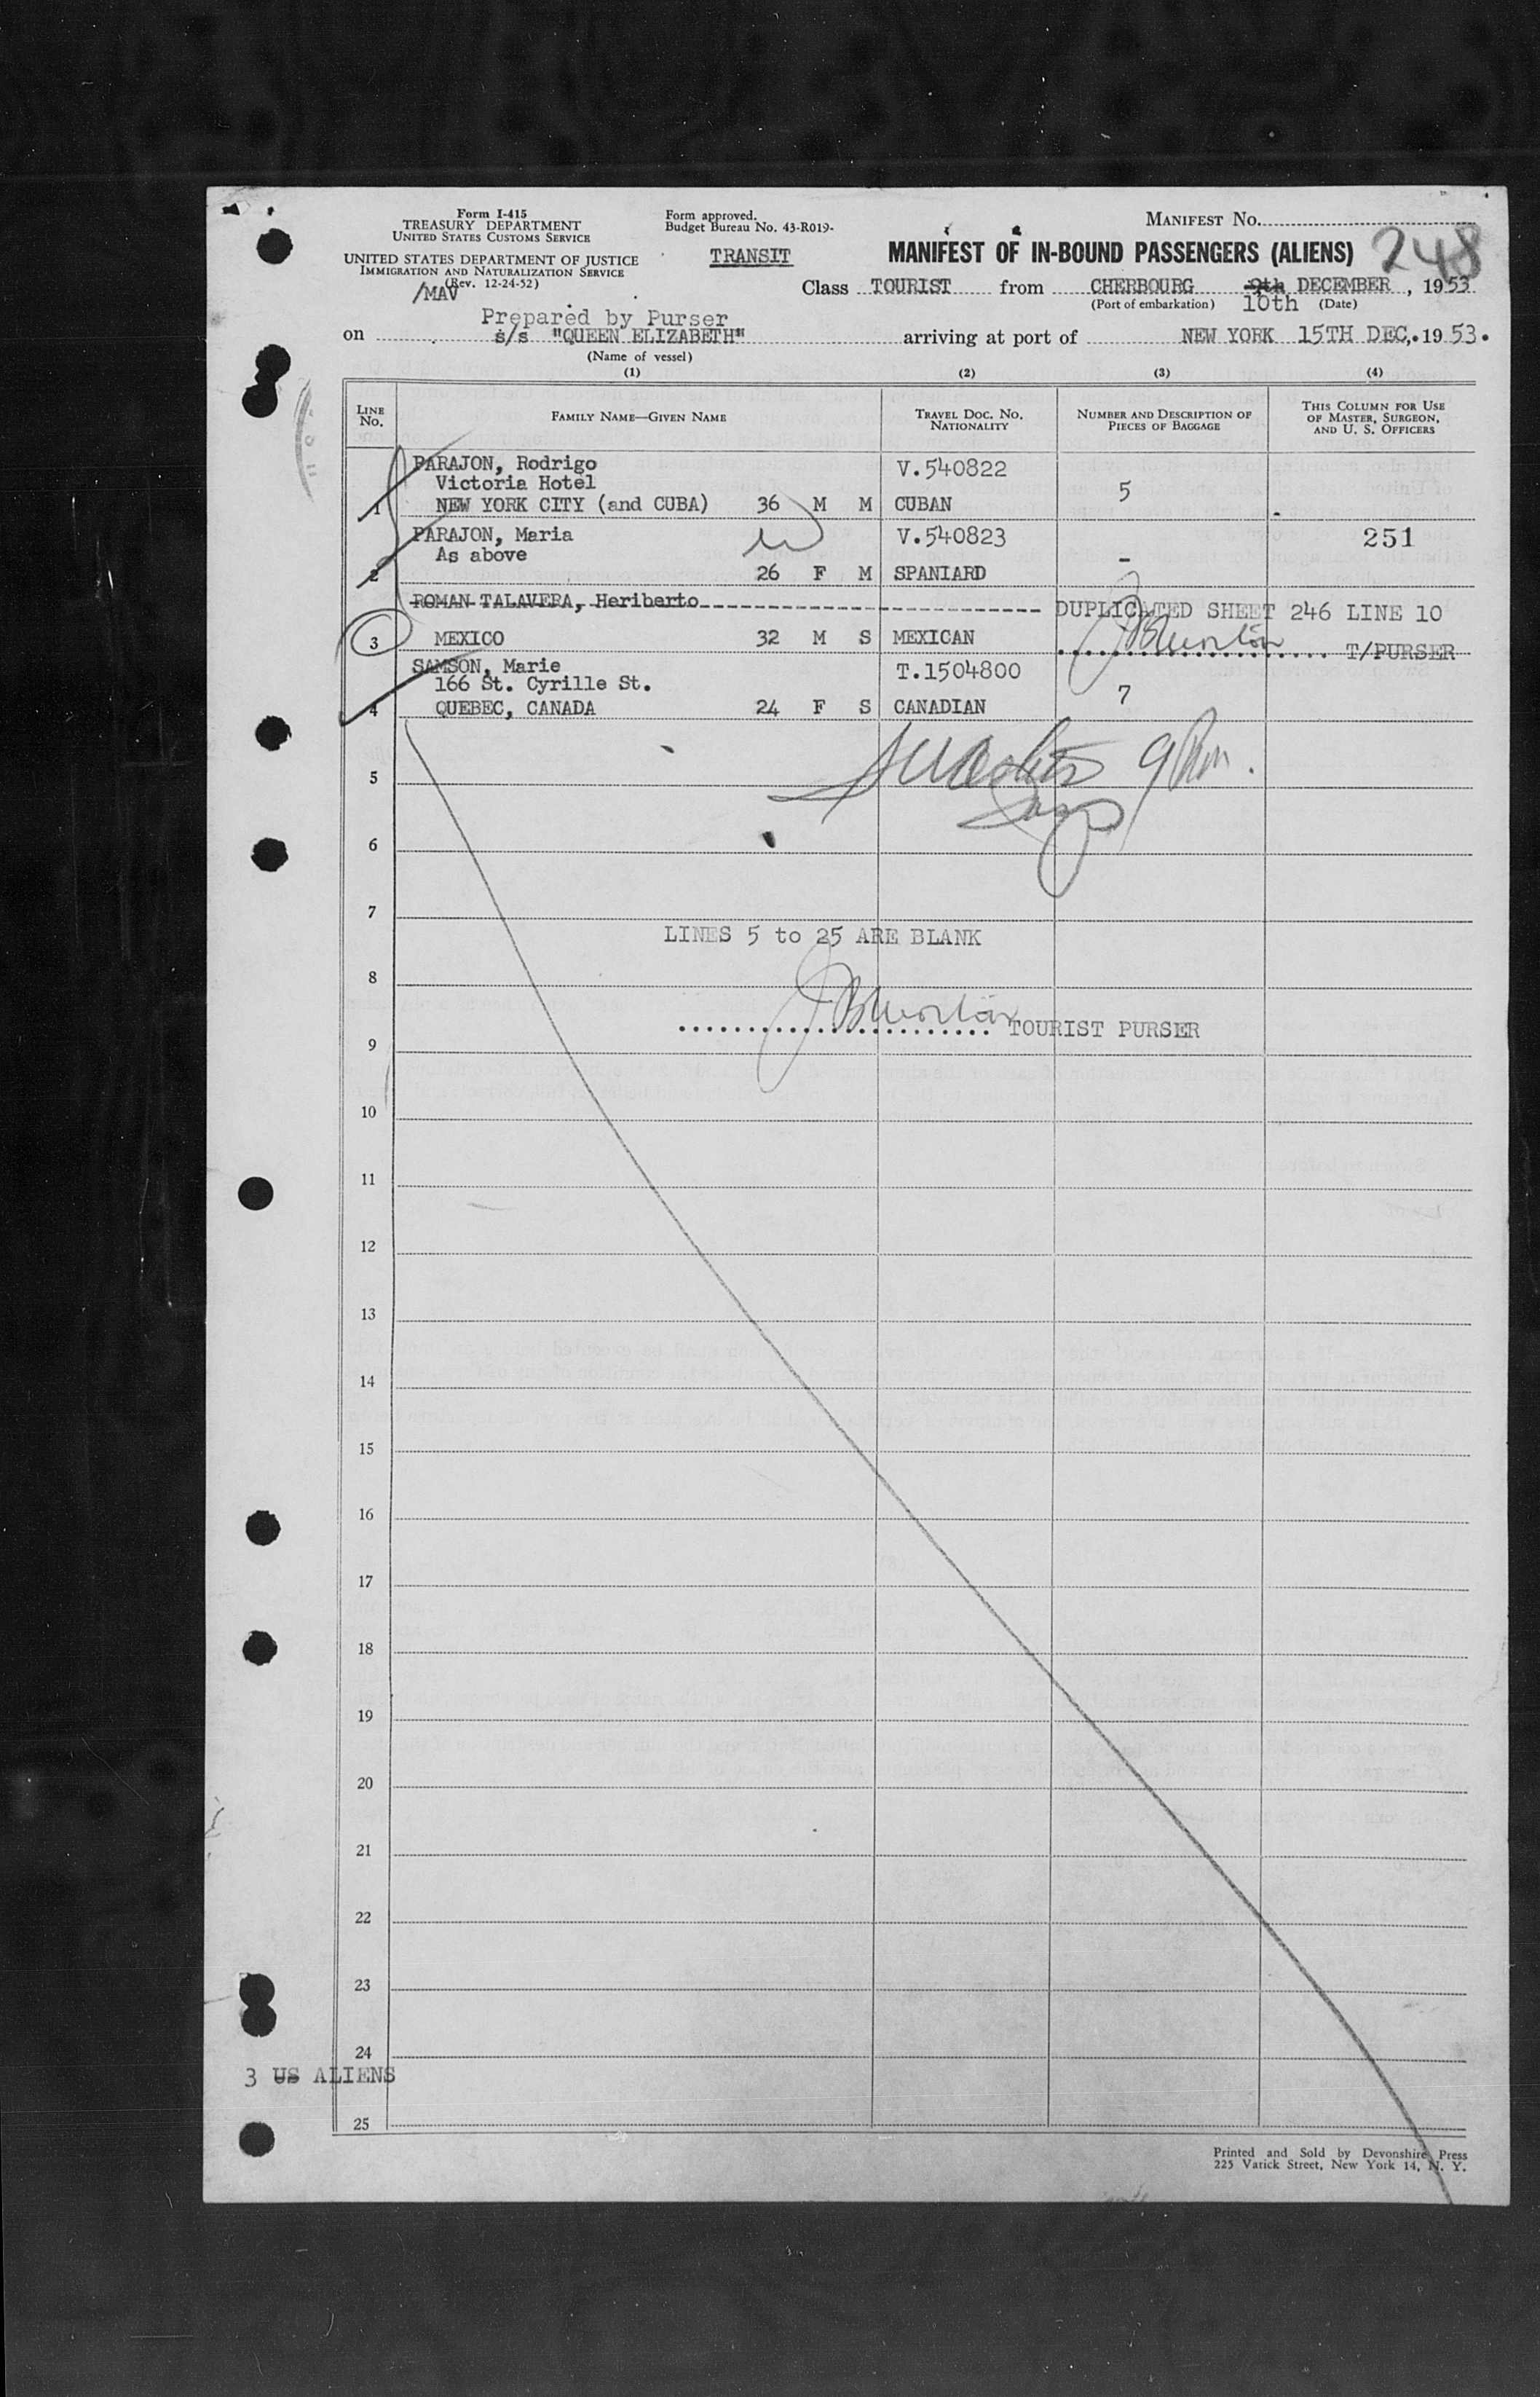 Form I-415
TREASURY DEPARTMENT
UNITED STATES CUSTOMS SERVICE
UNITED STATES DEPARTMENT OF JUSTICE
IMMIGRATION AND NATURALIZATION SERVICE
(Rev. 12-24-52)
/MAV
Form approved.
Budget Bureau No. 43-R019-
TRANSIT
MANIFEST NO.
MANIFEST OF IN-BOUND PASSENGERS (ALIENS)
248
Class TOURIST from CHERBOURG 9th DECEMBER, 1953
(Port of embarkation) 10th (Date)
Prepared by Purser
on s/s "QUEEN ELIZABETH" arriving at port of NEW YORK 15TH DEC,.1953.
(Name of vessel)
(1) (2) (3) (4)
LINE NO. FAMILY NAME—GIVEN NAME TRAVEL DOC. NO. NATIONALITY NUMBER AND DESCRIPTION OF PIECES OF BAGGAGE THIS COLUMN FOR USE OF MASTER, SURGEON, AND U. S. OFFICERS
PARAJON, Rodrigo V.540822
Victoria Hotel 5
1 NEW YORK CITY (and CUBA) 36 M M CUBAN
PARAJON, Maria V.540823 251
As above -
2 26 F M SPANIARD
ROMAN TALAVERA, Heriberto DUPLICATED SHEET 246 LINE 10
3 MEXICO 32 M S MEXICAN T/PURSER
SAMSON, Marie T.1504800
166 St. Cyrille St. 7
4 QUEBEC, CANADA 24 F S CANADIAN
5
6
7
LINES 5 to 25 ARE BLANK
8
TOURIST PURSER
9
10
11
12
13
14
15
16
17
18
19
20
21
22
23
24
3 US ALIENS
25
Printed and Sold by Devonshire Press
225 Varick Street, New York 14, N. Y.